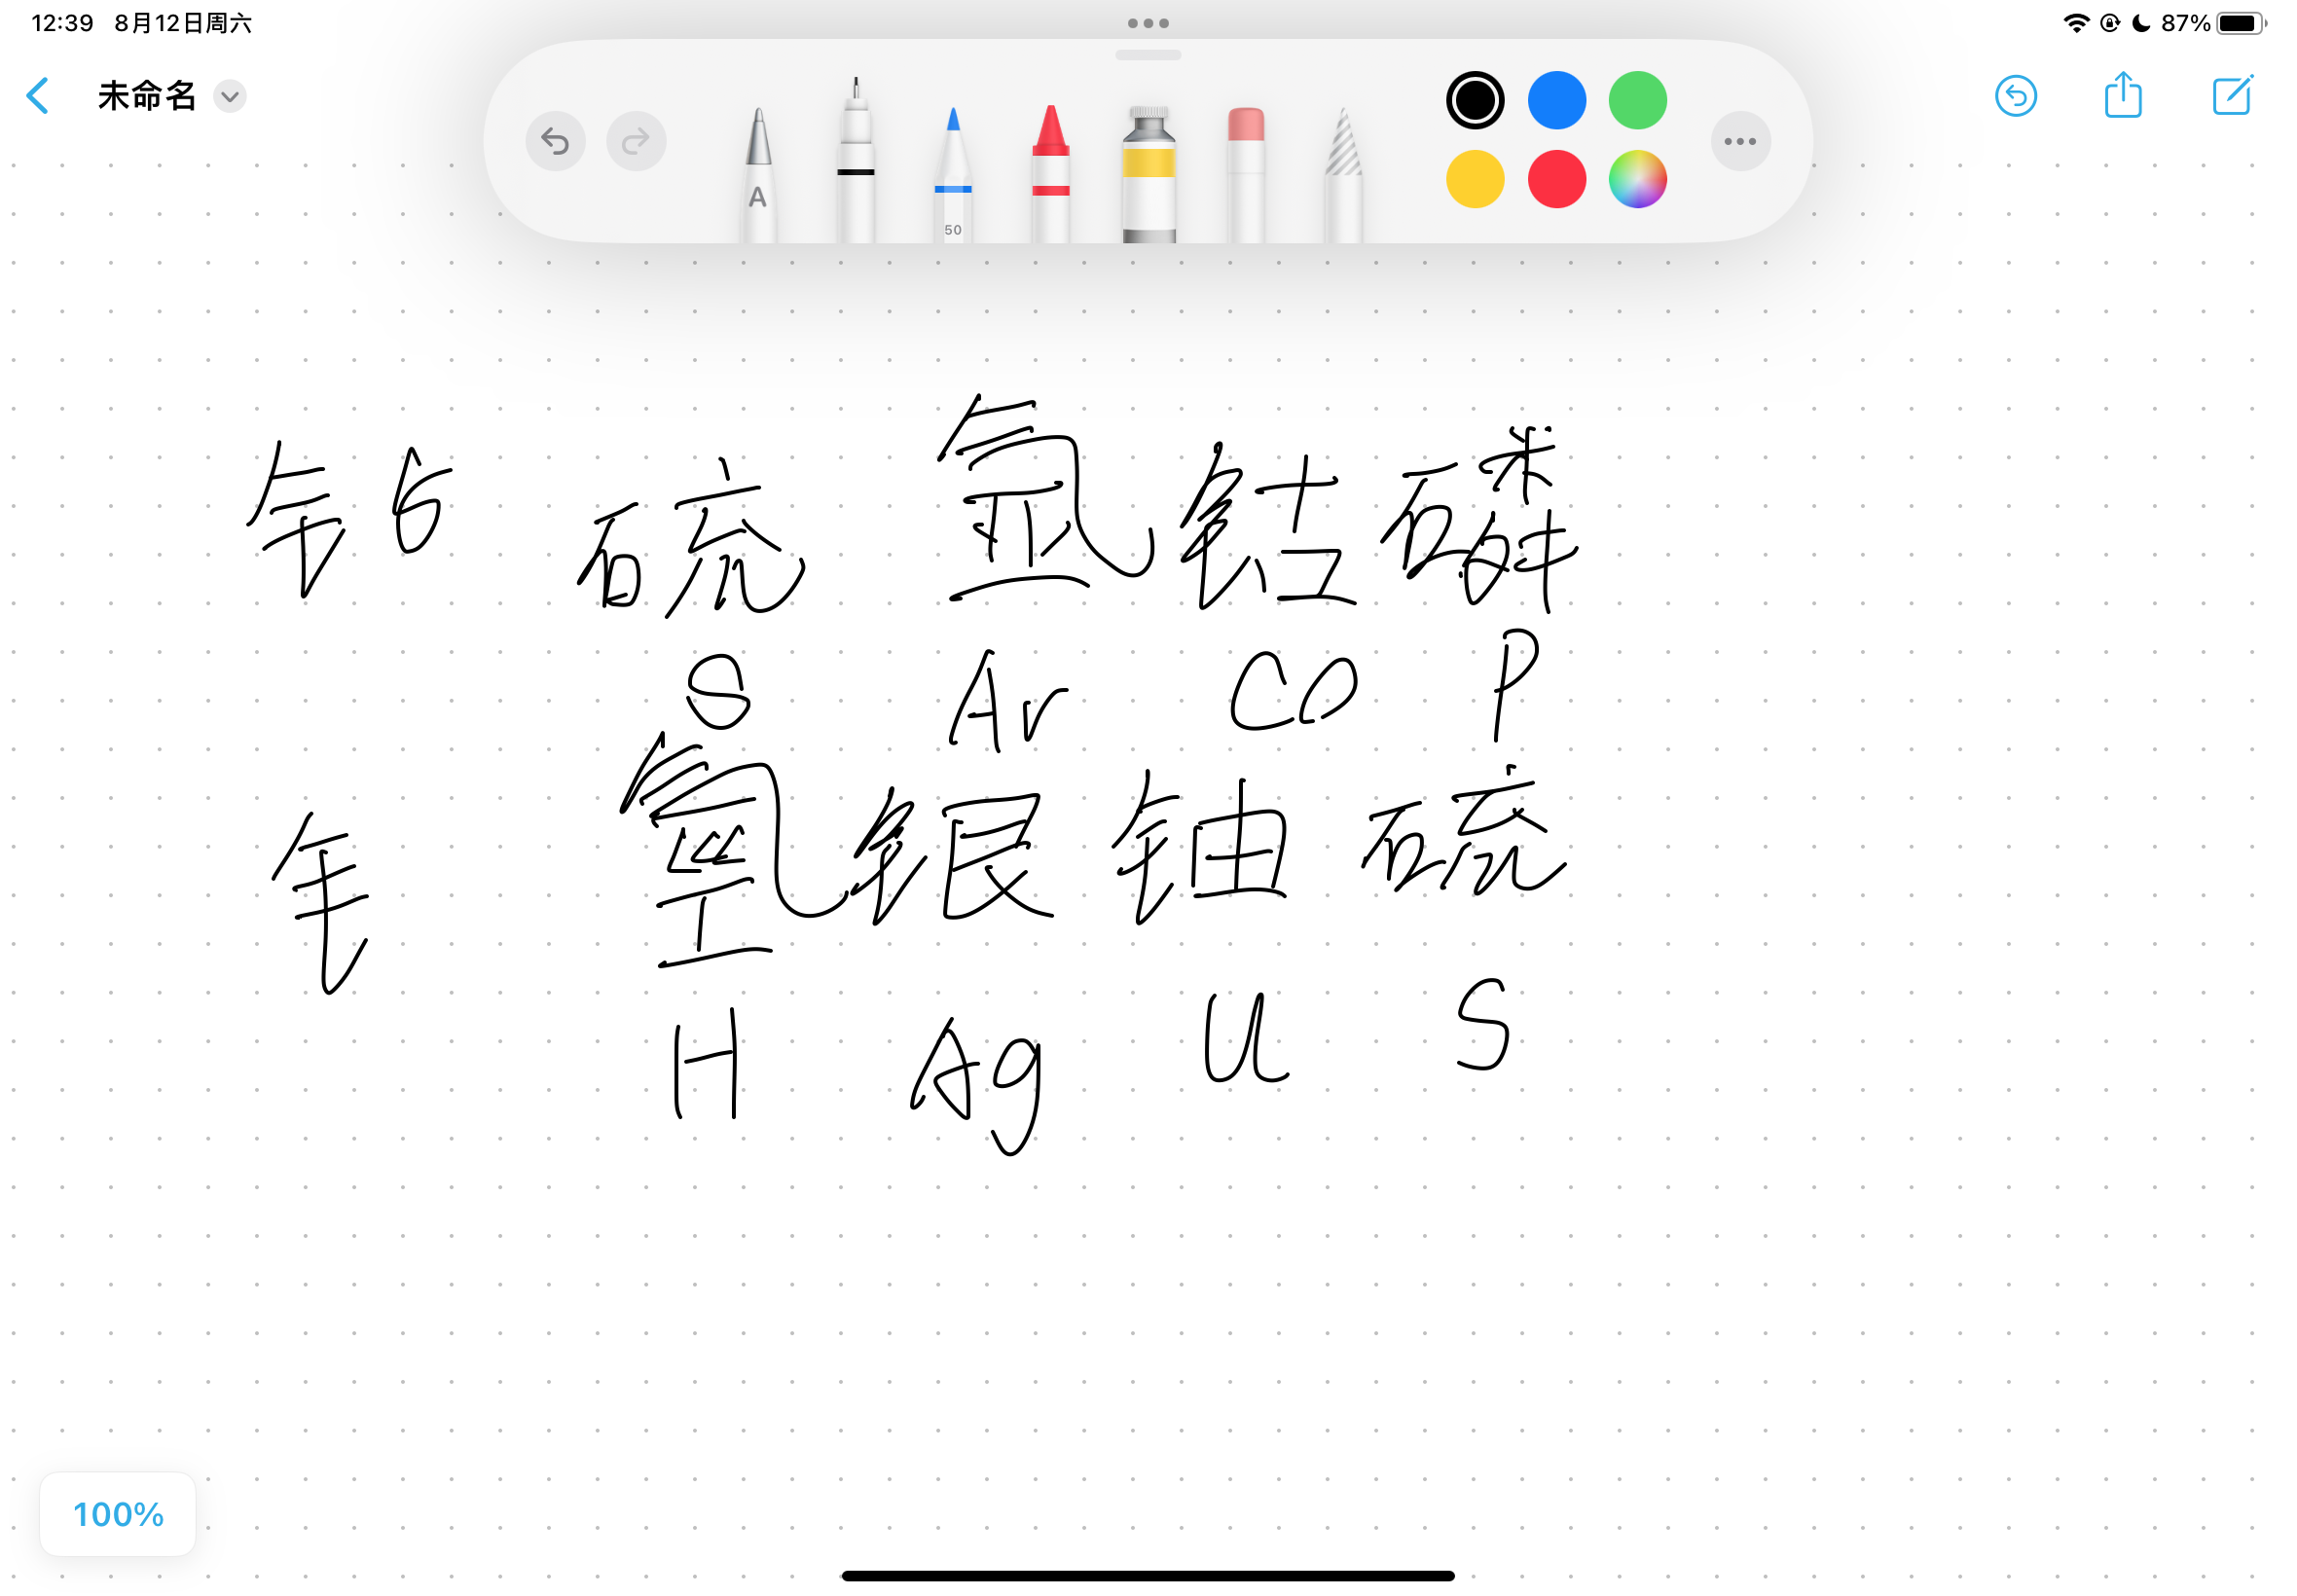 12:39 8月12日周六 87%
未命名
A 50
硫 氩 钴 磷
S Ar Co P
氢 银 铀 硫
H Ag U S
100%